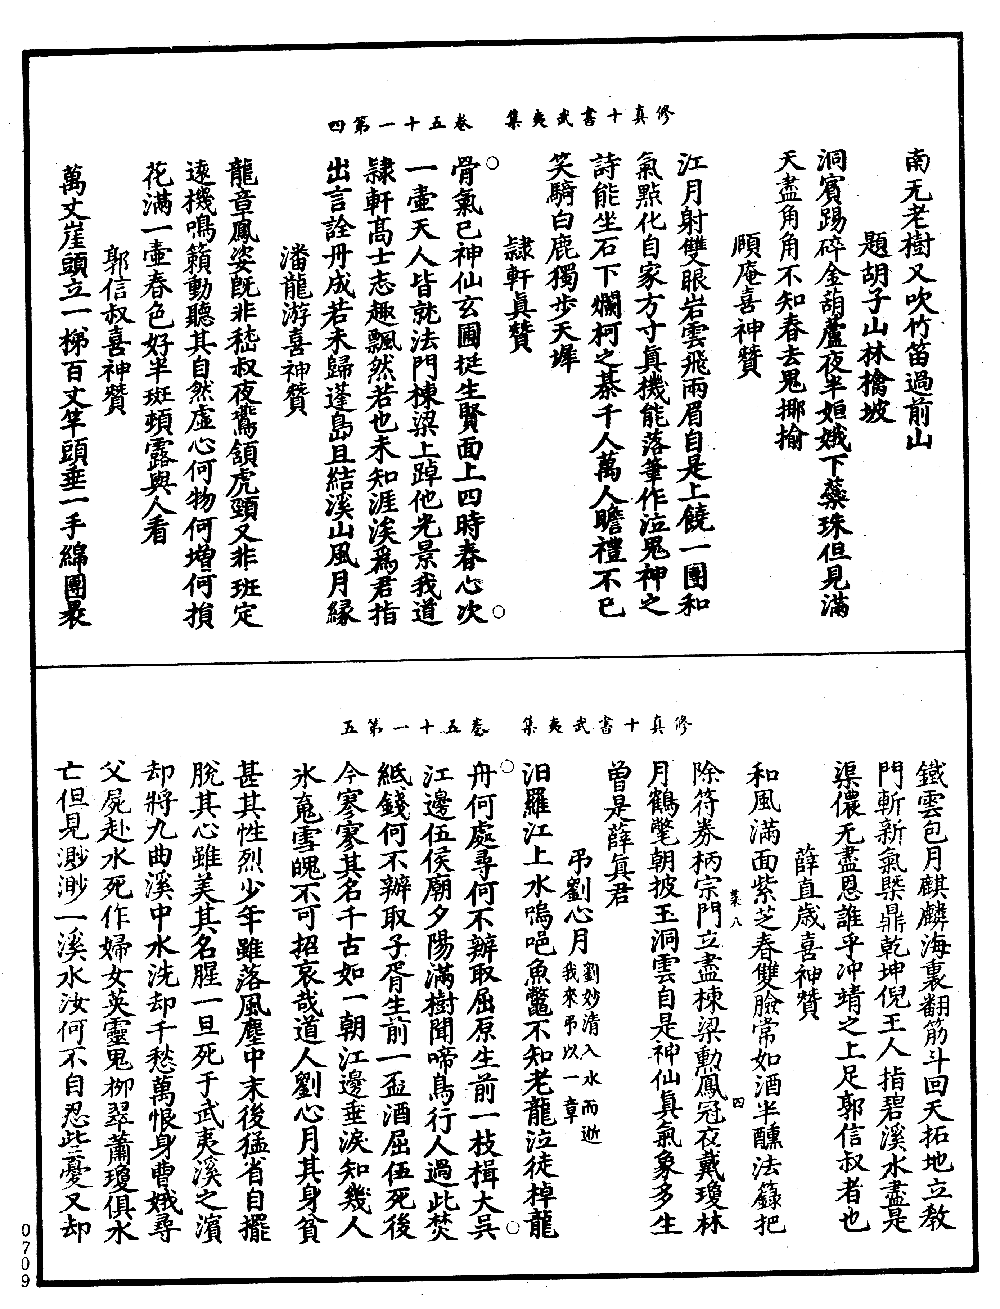 修真十書武夷集　卷五十一第四
南无老樹又吹竹笛過前山
題胡子山林檎坡
洞賓踢碎金葫蘆夜半姮娥下蘂珠但見滿
天盡角角不知春去鬼揶揄
頤庵喜神贊
江月射雙眼岩雲飛兩眉自是上饒一團和
氣點化自家方寸眞機能落筆作泣鬼神之
詩能坐石下爛柯之棊千人萬人瞻禮不已
笑騎白鹿獨步天墀
隷軒眞贊
骨氣已神仙玄圃挺生賢面上四時春心次
一壷天人皆就法門棟梁上踔他光景我道
隷軒高士志趣飄然若也未知涯涘爲君指
出言詮丹成若未歸蓬島且結溪山風月緣
潘龍游喜神贊
龍章鳳姿旣非嵇叔夜鷰頷虎頸又非班定
遠機鳴籟動聽其自然虛心何物何增何損
花滿一壷春色好半斑頰露與人看
郭信叔喜神贊
萬丈崖頭立一梯百丈竿頭垂一手綿團裹
修真十書武夷集　卷五十一第五
鐵雲包月麒麟海裏翻筋斗回天拓地立敎
門斬新氣槩鼎乾坤倪王人指碧溪水盡是
渠儂无盡恩誰乎冲靖之上足郭信叔者也
薛直歲喜神贊
和風滿面紫芝春雙臉常如酒半醺法籙把
菜八　四
除符券柄宗門立盡棟梁勳鳳冠夜戴瓊林
月鶴氅朝披玉洞雲自是神仙眞氣象多生
曾是薛眞君
弔劉心月劉妙清入水而逝我來弔以一章
汨羅江上水嗚咽魚鼈不知老龍泣徒棹龍
舟何處尋何不辦取屈原生前一枝楫大吳
江邊伍侯廟夕陽滿樹聞啼鳥行人過此焚
紙錢何不辦取子胥生前一盃酒屈伍死後
今寥寥其名千古如一朝江邊垂淚知幾人
氷䰟雪魄不可招哀哉道人劉心月其身貧
甚其性烈少年雖落風塵中末後猛省自擺
脫其心雖美其名腥一旦死于武夷溪之濱
却將九曲溪中水洗却千愁萬恨身曹娥尋
父屍赴水死作婦女英靈鬼柳翠蕭瓊俱水
亡但見渺渺一溪水汝何不自忍些憂又却
0709